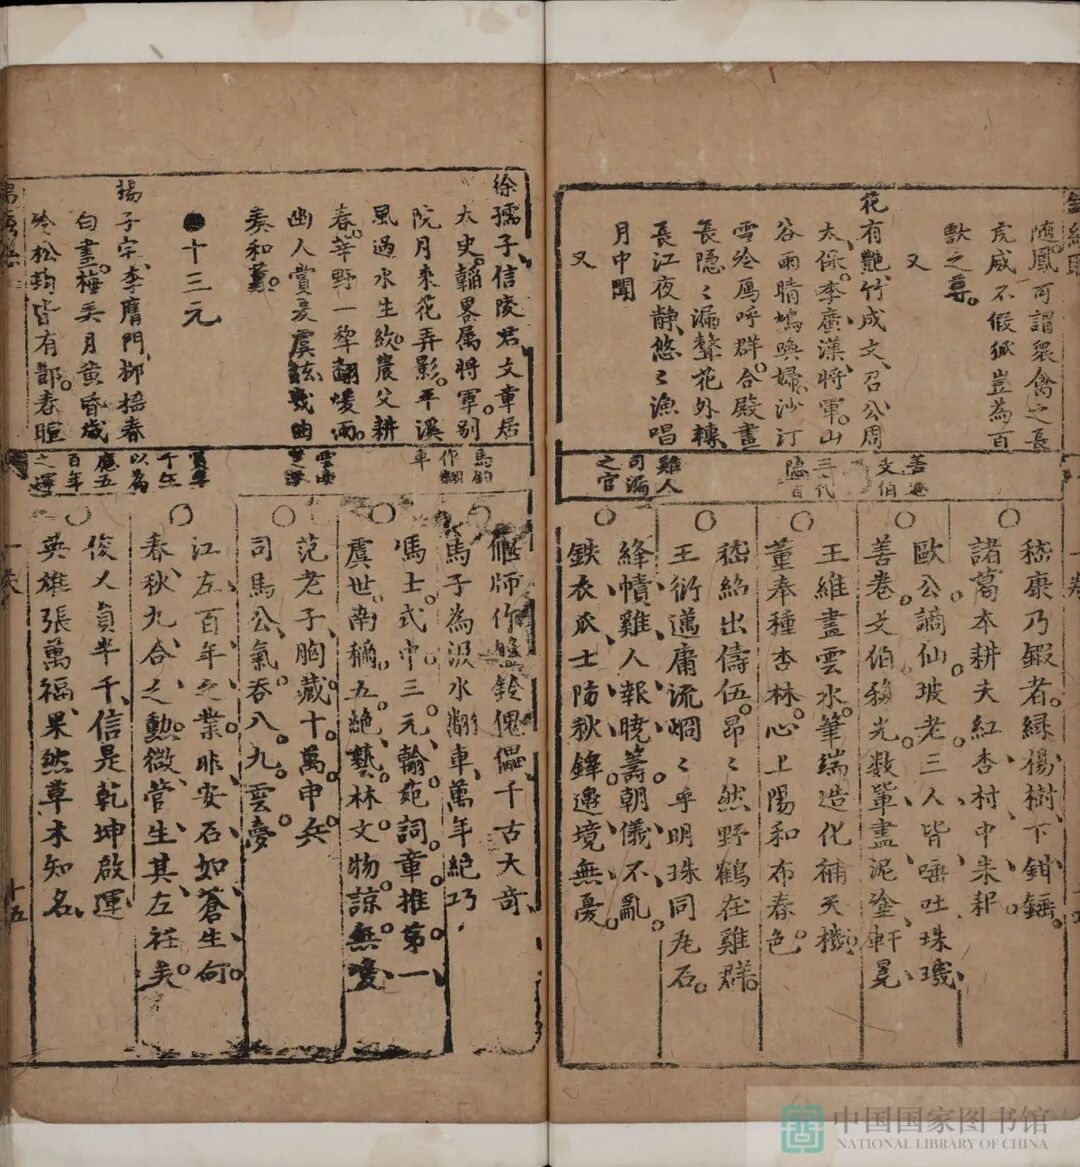 随鳳可謂衆禽之長
虎威不假狐豈為百
獸之尊
又
花有艷竹成文召公周
太保李廣漢將軍山
谷雨晴鳩喚婦沙汀
雪冷鴈呼群合殿晝
長隱〻漏聲花外轉
長江夜静悠〻漁唱
月中聞
又
善卷
文伯
三代
隐者
雞人
司漏
之官
嵇康乃鍜者緑楊樹下鉗錘
諸葛本耕夫紅杏村中耒耜
歐公謫仙坡老三人皆唾吐珠璣
善卷文伯務光數軰盡泥塗軒冕
王維畫雲水筆端造化補天機
董奉種杏林心上陽和布春色
嵇紹出儔伍昂〻然野鶴在雞群
王衍邁庸流烱〻乎明珠同瓦石
絳幘雞人報曉籌朝儀不亂
鉄衣瓜士防秋鋒邊境無憂
徐孺子信陵君文章居
太史韜畧属將軍别
院月来花弄影平溪
風過水生紋農父耕
春莘野一犂翻煖雨
幽人賞夏虞絃幾曲
奏和薰
十三元
揚子宅李膺門柳梧春
白晝梅美月黄昏歲
冷松筠皆有節春暄
馬鈞
作翻
車
雲夢
楚澤
員半
千生
以為
應五
百年
之運
偃師作盤鈴傀儡千古大奇
馬子為汲水翻車萬年絶巧
馮士式中三元翰苑詞章推第一
虞世南稱五絶藝林文物諒無雙
范老子胸藏十萬甲兵
司馬公氣吞八九雲夢
江左百年之業非安石如蒼生何
春秋九合之勲微管生其左衽矣
俊人員半千信是乾坤啟運
英雄張萬福果然草木知名
一卷
十五